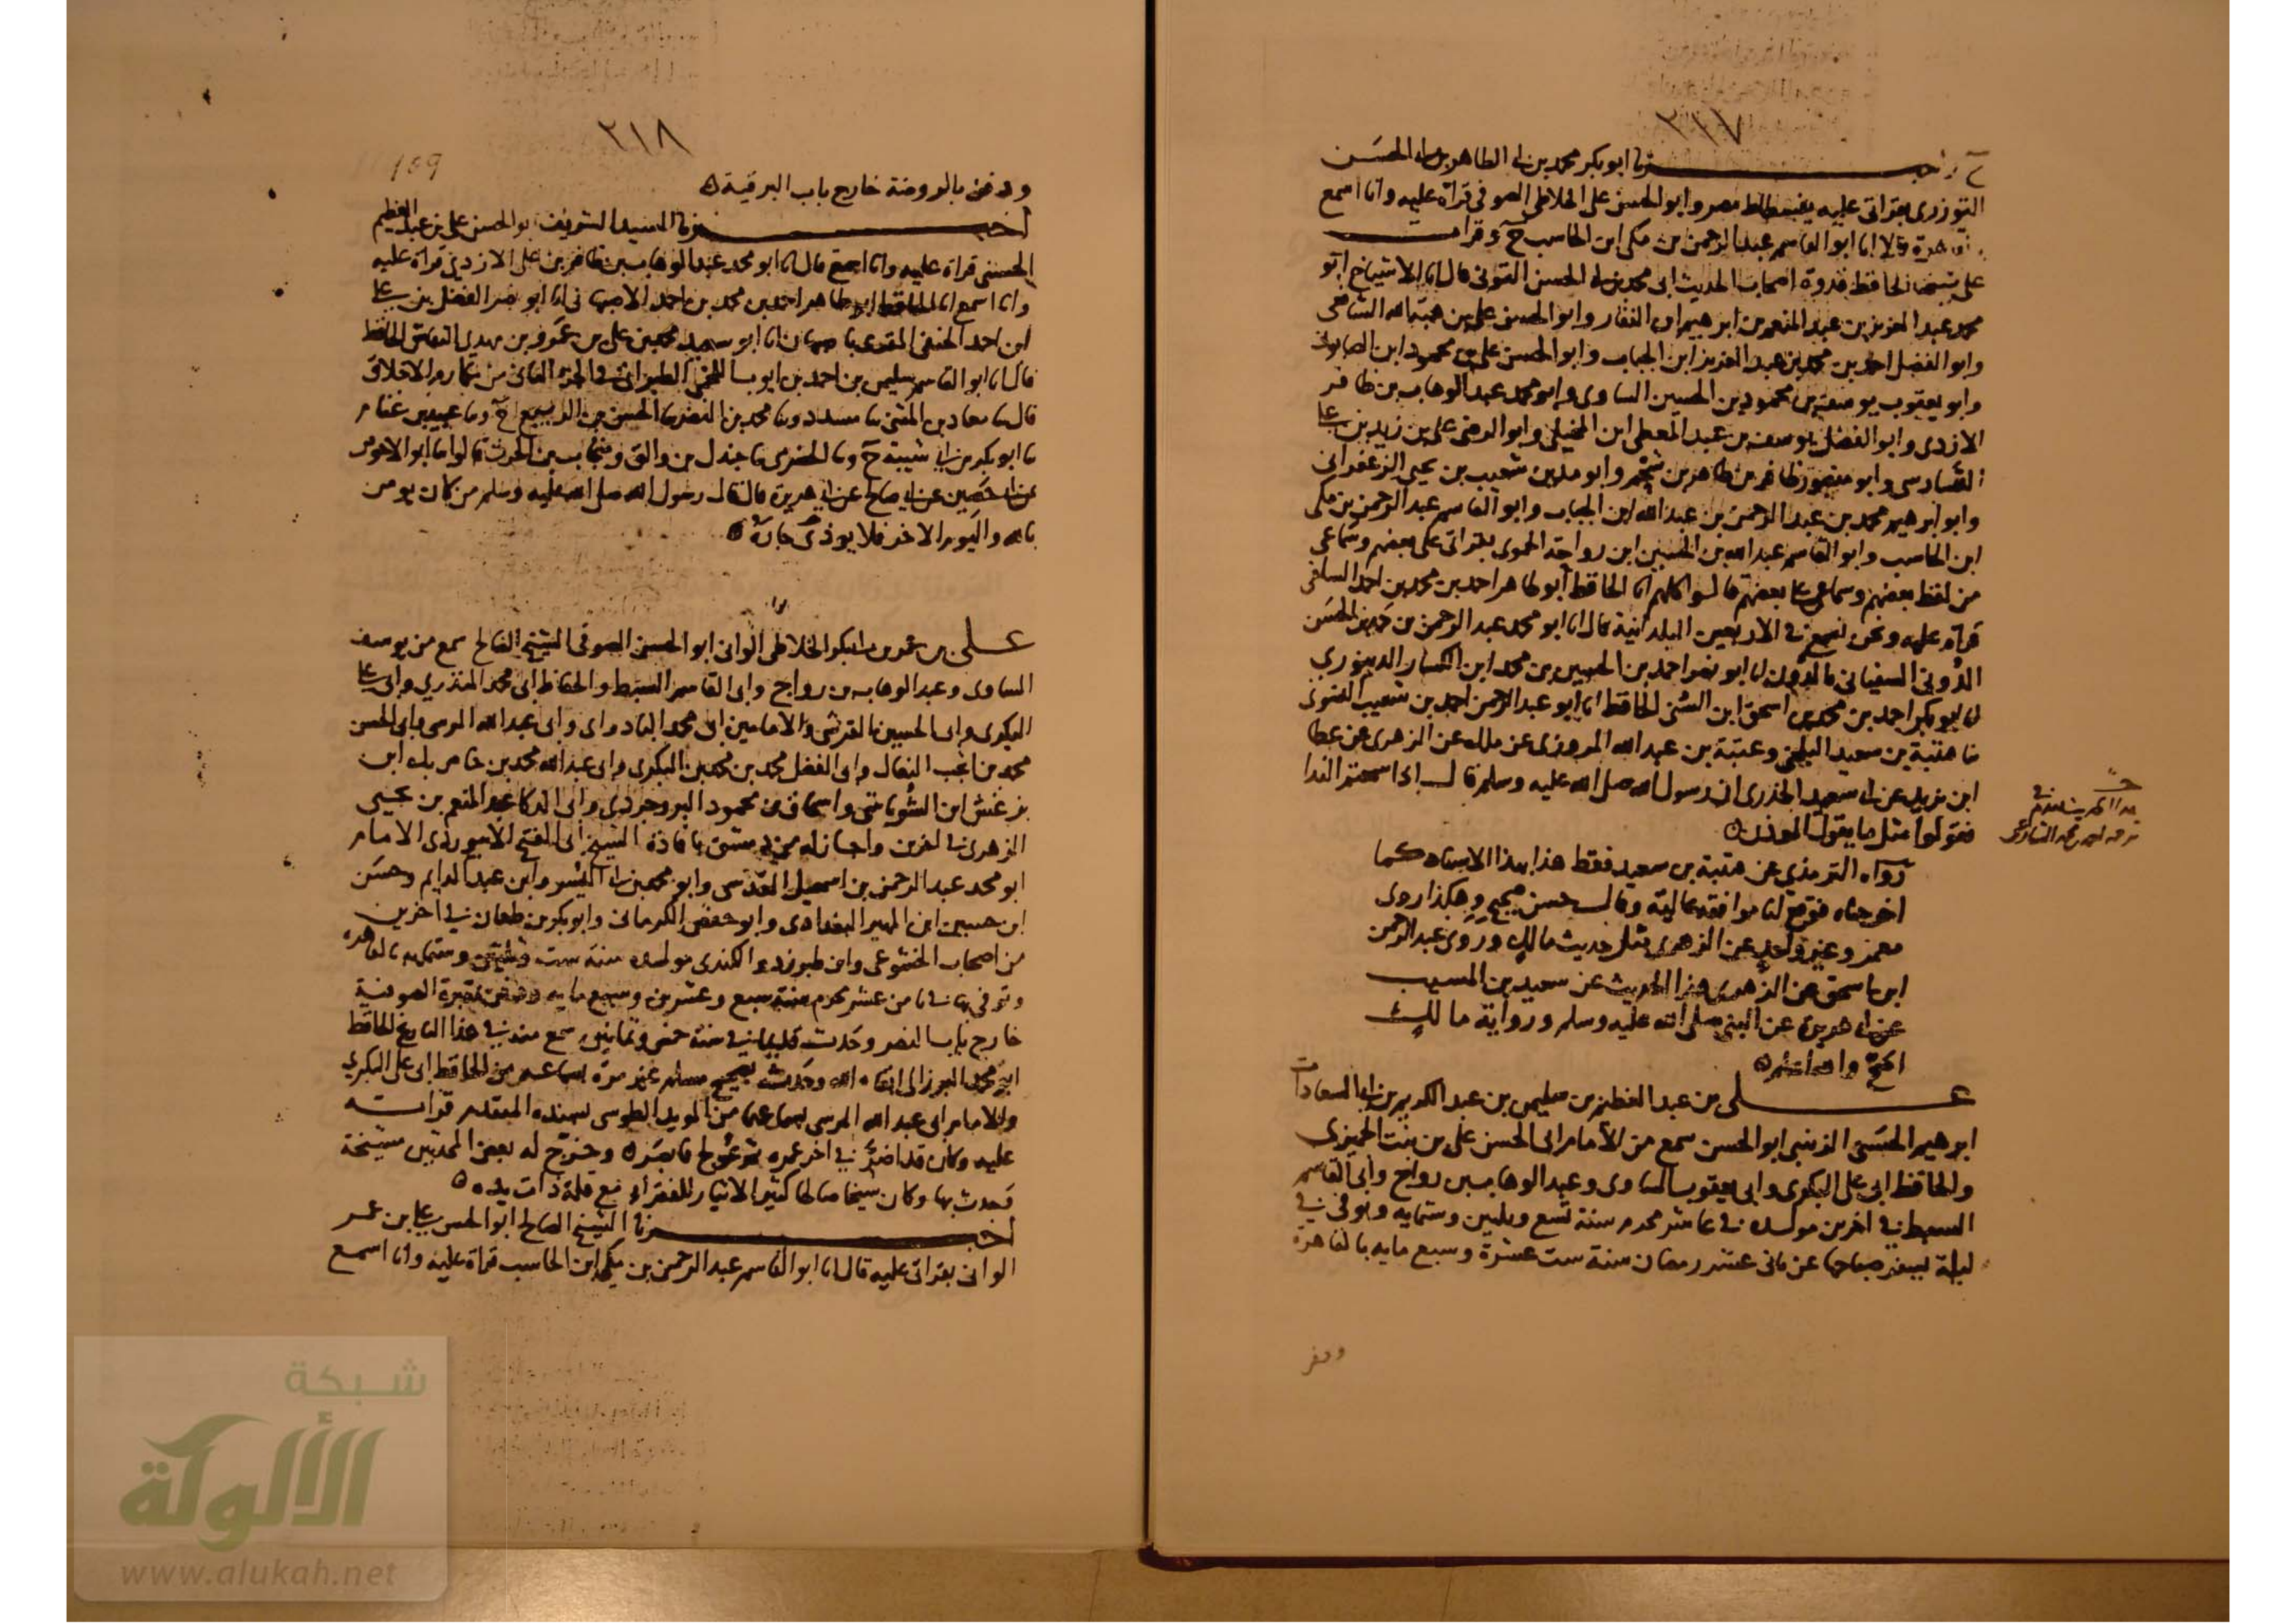 ٢١٧
ح واخبرنا ابو بكر محمد بن ابي الطاهر بن ابي الحسن
التوزري بقراتي عليه بفسطاط مصر وابو الحسن علي الخلاطي الصوفي قراة عليه وانا اسمع
بالقاهرة قالا انا ابو القاسم عبد الرحمن بن مكي ابن الحاسب ح وقرات
على شيخنا الحافظ قدوة اصحاب الحديث ابي محمد بن ابي الحسن التوني قال انا الاشياخ ابو
محمد عبد العزيز بن عبد المنعم بن ابرهيم ابن النقار وابو الحسن علي بن هبة الله الشافعي
وابو الفضل احمد بن محمد بن عبد العزيز ابن الجباب وابو الحسن علي بن محمود ابن الصابوني
وابو يعقوب يوسف بن محمود بن الحسين الساوي وابو محمد عبد الوهاب بن ظافر
الازدي وابو الفضل يوسف بن عبد المعطي ابن المخيلي وابو الرضى علي بن زيد بن علي
التسارسي وابو منصور ظافر بن طاهر بن شحم وابو مدين شعيب بن يحيى الزعفراني
وابو ابرهيم محمد بن عبد الرحمن بن عبد الله ابن الجباب وابو القاسم عبد الرحمن بن مكي
ابن الحاسب وابو القاسم عبد الله بن الحسين ابن رواحة الحموي بقراتي على بعضهم وسماعي
من لفظ بعضهم وسماعي على بعضهم قالوا كلهم انا الحافظ ابو طاهر احمد بن محمد بن احمد السلفي
قراة عليه ونحن نسمع في الاربعين البلدانية قال انا ابو محمد عبد الرحمن بن حمد بن الحسن
الدوني السفياني بالدون انا ابو نصر احمد بن الحسين بن محمد ابن الكسار الدينوري
انا ابو بكر احمد بن محمد بن اسحق ابن السني الحافظ انا ابو عبد الرحمن احمد بن شعيب النسوي
نا قتيبة بن سعيد البلخي وعتبة بن عبد الله المروزي عن ملك عن الزهري عن عطا
ابن يزيد عن ابي سعيد الخدري ان رسول الله صلى الله عليه وسلم قال اذا سمعتم الندا
فقولوا مثل ما يقول الموذن
هذا الحديث تقدم في
رواه الترمذي عن قتيبة بن سعيد فقط هذا بهذا الاسناد كما
اخرجناه فوقع لنا موافقة عالية وقال حسن صحيح وهكذا روى
معمر وغير واحد عن الزهري مثل حديث مالك وروى عبد الرحمن
ابن اسحق عن الزهري هذا الحديث عن سعيد بن المسيب
عن ابي هريرة عن النبي صلى الله عليه وسلم ورواية مالك
اصح والله اعلم
علي بن عبد العظيم بن سليمن بن عبد الكريم بن ابي السعادات
ابرهيم الحسني الزينبي ابو الحسن سمع من الامام ابي الحسن علي بن بنت الجميزي
والحافظ ابي علي البكري وابي يعقوب الساوي وعبد الوهاب بن رواج وابي القاسم
السبط في اخرين مولده في عاشر محرم سنة تسع وثلثين وستمايه وتوفي في
ليلة يسفر صباحها عن ثاني عشر رمضان سنة ست عشرة وسبع مايه بالقاهرة
ودفن
٢١٨
109
ودفن بالروضة خارج باب البرقية
اخبرنا السيد الشريف ابو الحسن علي بن عبد العظيم
الحسني قراة عليه وانا اسمع قال انا ابو محمد عبد الوهاب بن ظافر بن علي الازدي قراة عليه
وانا اسمع انا الحافظ ابو طاهر احمد بن محمد بن احمد الاصبهاني انا ابو نصر الفضل بن علي
ابن احمد الحنفي المقري باصبهان انا ابو سعيد محمد بن علي بن عمرو بن مهدي النقاش الحافظ
قال انا ابو القاسم سليمن بن احمد بن ايوب اللخمي الطبراني في الجزء الثاني من مكارم الاخلاق
قال نا معاذ بن المثنى نا مسدد ونا محمد بن النضر نا الحسن بن الربيع ح ونا عبيد بن غنام
نا ابو بكر بن ابي شيبة ح ونا الحضرمي نا جندل بن والق ومنجاب بن الحرث قالوا نا ابو الاحوص
عن ابي حصين عن ابي صالح عن ابي هريرة قال قال رسول الله صلى الله عليه وسلم من كان يومن
بالله واليوم الاخر فلا يوذي جاره
علي بن عمر بن ابي بكر الخلاطي الواني ابو الحسن الصوفي الشيخ الصالح سمع من يوسف
الساوي وعبد الوهاب بن رواج وابي القاسم السبط والحفاظ ابي محمد المنذري وابي علي
البكري وابي الحسين القرشي والامامين ابي محمد البادراي وابي عبد الله المرسي وابي الحسن
محمد بن انجب النعال وابي الفضل محمد بن محمد البكري وابي عبد الله محمد بن خاص بك ابن
بزغش ابن الشوباشي واسحاق بن محمود البروجردي وابي الذكا عبد المنعم بن يحيى
الزهري في اخرين واجاز له من دمشق بافادة الشيخ ابي الفتح الابيوردي الامام
ابو محمد عبد الرحمن بن اسمعيل المقدسي وابو محمد بن ابي اليسر وابن عبد الدايم وحسن
ابن حسين ابن المهير البغدادي وابو حفص الكرماني وابو بكر بن طعان في اخرين
من اصحاب الخشوعي وابن طبرزد والكندي مولده سنة ست وثلثين وستمايه بالقاهرة
وتوفي بها في ثامن عشر محرم سنة سبع وعشرين وسبع مايه ودفن بمقبرة الصوفية
خارج باب النصر وحدث قديما في سنة خمس وثمانين سمع منه في هذا التاريخ الحافظ
ابو محمد البرزالي ابقاه الله وحدث بصحيح مسلم غير مرة بسماعه من الحافظ ابي علي البكري
والامام ابي عبد الله المرسي بسماعهما من المويد الطوسي بسنده المتقدم قراته
عليه وكان قد اضر في اخر عمره ثم عولج فابصر وخرج له بعض المحدثين مشيخة
وحدث بها وكان شيخا صالحا كثير الايثار للفقراء مع قلة ذات يده
اخبرنا الشيخ الصالح ابو الحسن علي بن عمر
الواني بقراتي عليه قال انا ابو القاسم عبد الرحمن بن مكي ابن الحاسب قراة عليه وانا اسمع
شبكة
الألوكة
www.alukah.net